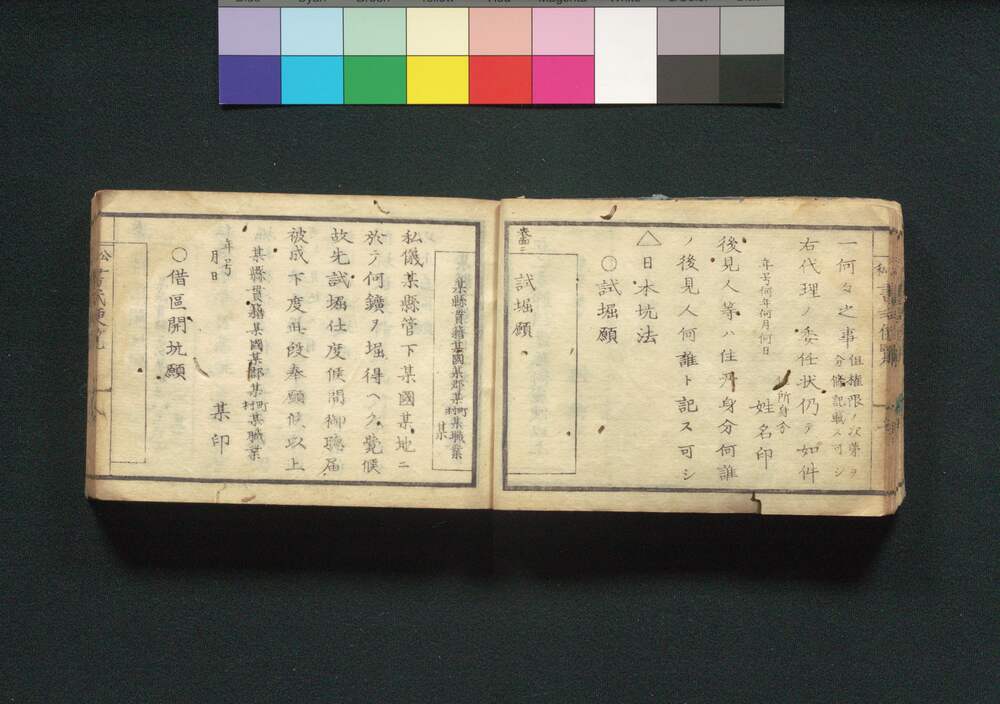 一何々之事 但権限ノ次第ヲ
分條記載ス可シ
右代理ノ委任状仍テ如件
年号何年何月何日
住所身分
姓名印
後見人等ハ住所身分何誰
ノ後見人何誰ト記ス可シ
△日本坑法
○試堀願
試堀願
某縣貫籍某國某郡某町村某職業
某
私儀某縣管下某國某地ニ
於テ何鑛ヲ堀得ヘク覺候
故先試堀仕度候間御聽届
被成下度此段奉願候以上
某縣貫籍某國某郡某町村某職業
年号
月日
某印
○借區開坑願